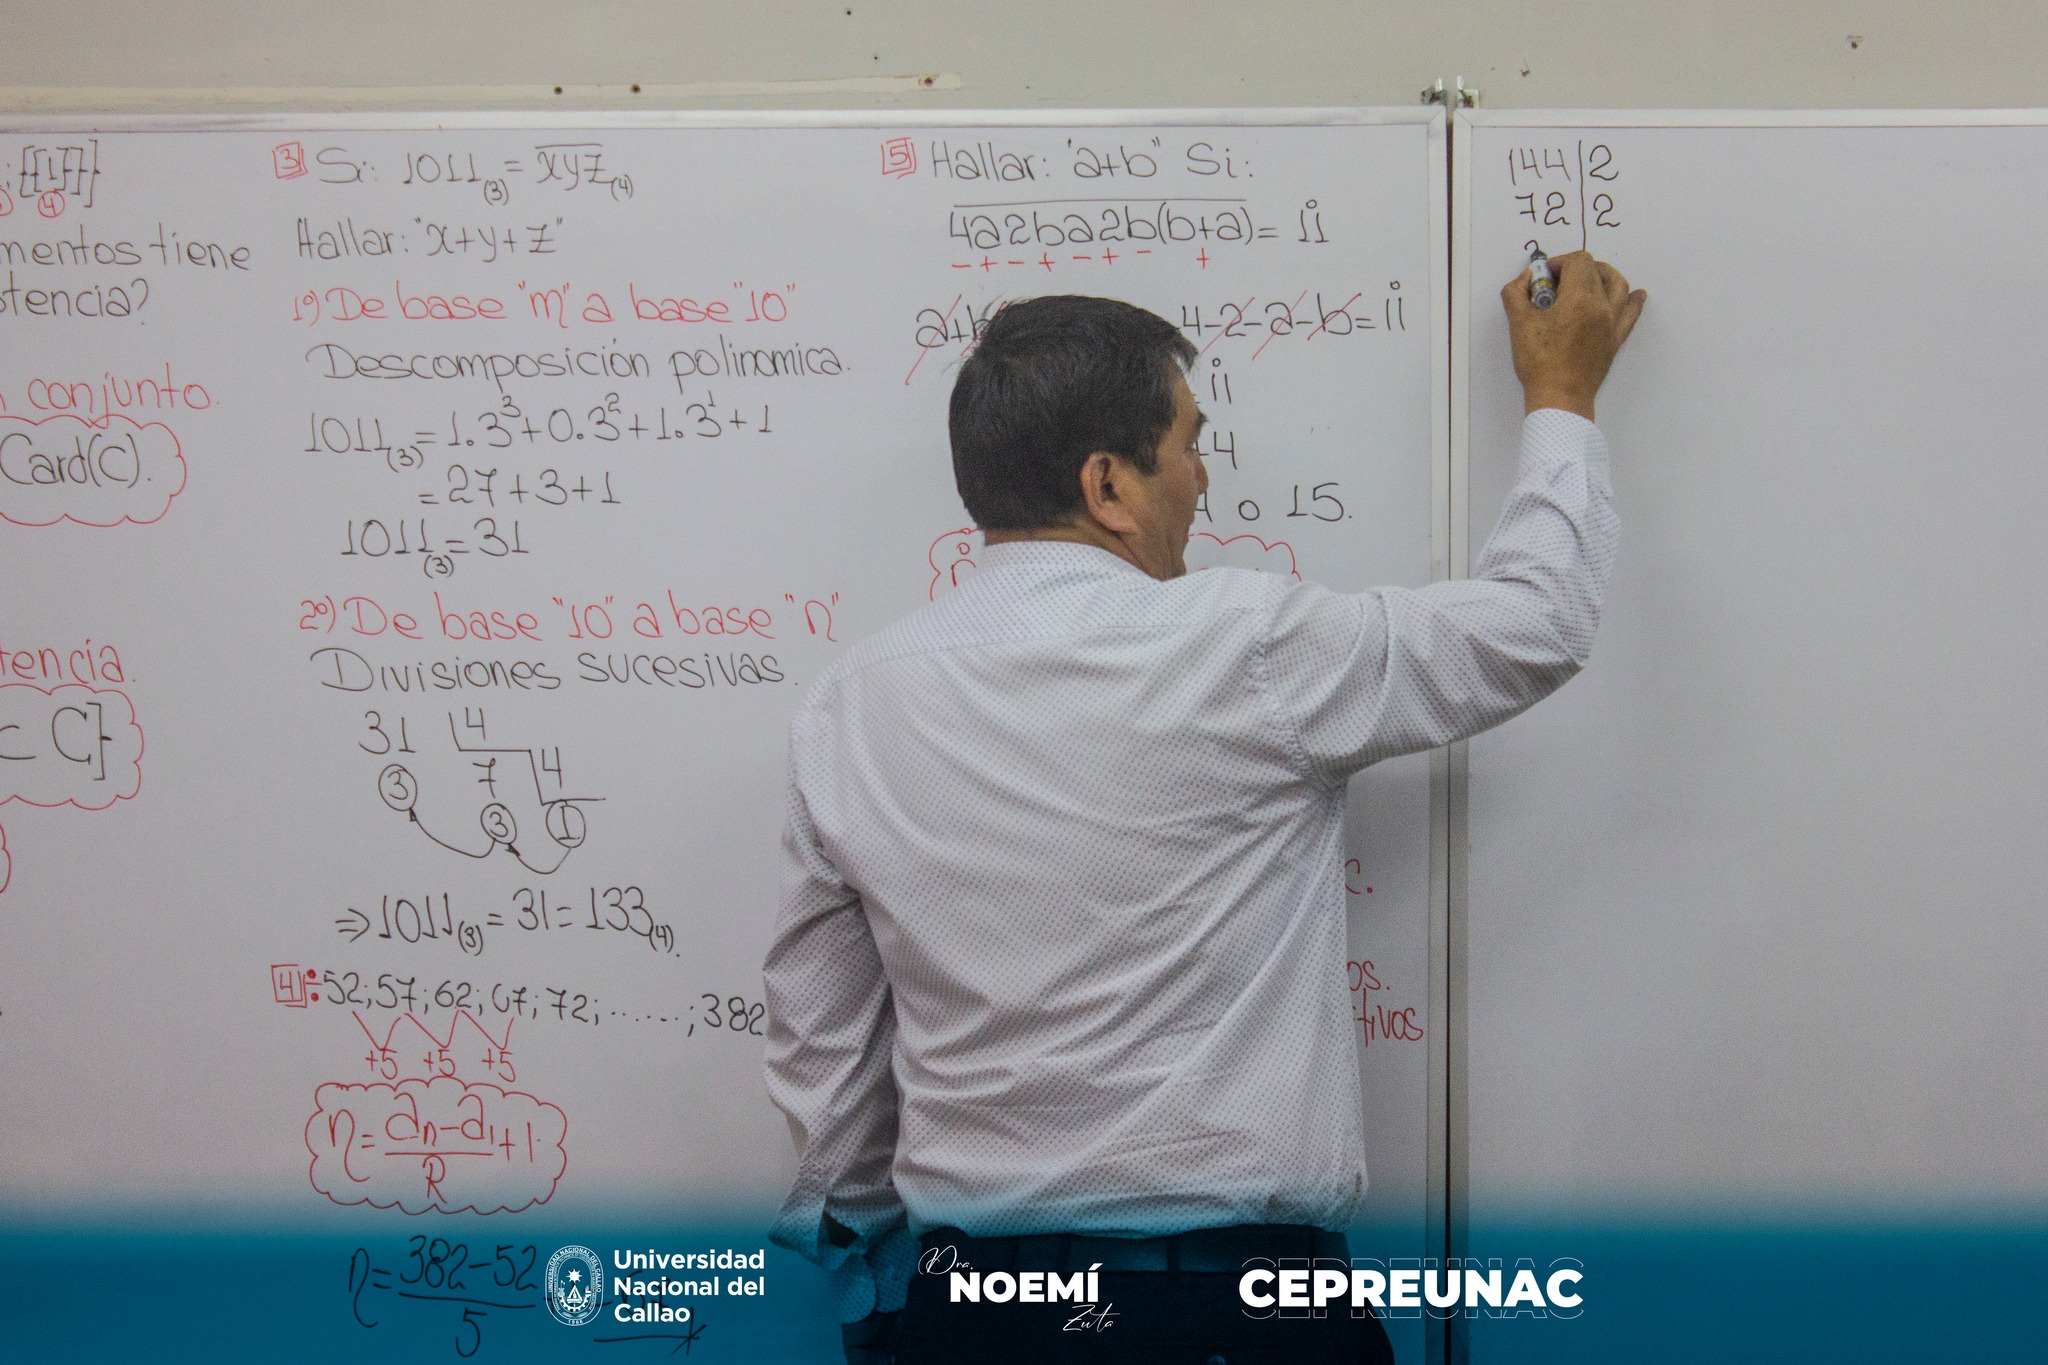 ; {{1}}}
4
mentos tiene
tencia?
conjunto.
Card(C).
tencia.
C}
3 Si: 1011(3) = xyz(4)
Hallar: "x+y+z"
1º) De base "m" a base "10"
Descomposición polinomica.
1011(3) = 1.3³+0.3²+1.3¹+1
= 27+3+1
1011(3) = 31
2º) De base "10" a base "n"
Divisiones sucesivas.
31 4
3 7 4
3 1
⇒ 1011(3) = 31 = 133(4).
4 ÷ 52; 57; 62; 67; 72; ......; 382
+5 +5 +5
n = (an - a1)/R + 1.
n = (382-52)/5
5 Hallar: "a+b" Si:
4a2ba2b(b+a) = 11°
- + - + - + - +
a+b 4-2-a-b = 11°
11°
14
o 15.
c.
os.
tivos
144 2
72 2
Universidad
Nacional del
Callao
Dra.
NOEMÍ
Zuta
CEPREUNAC